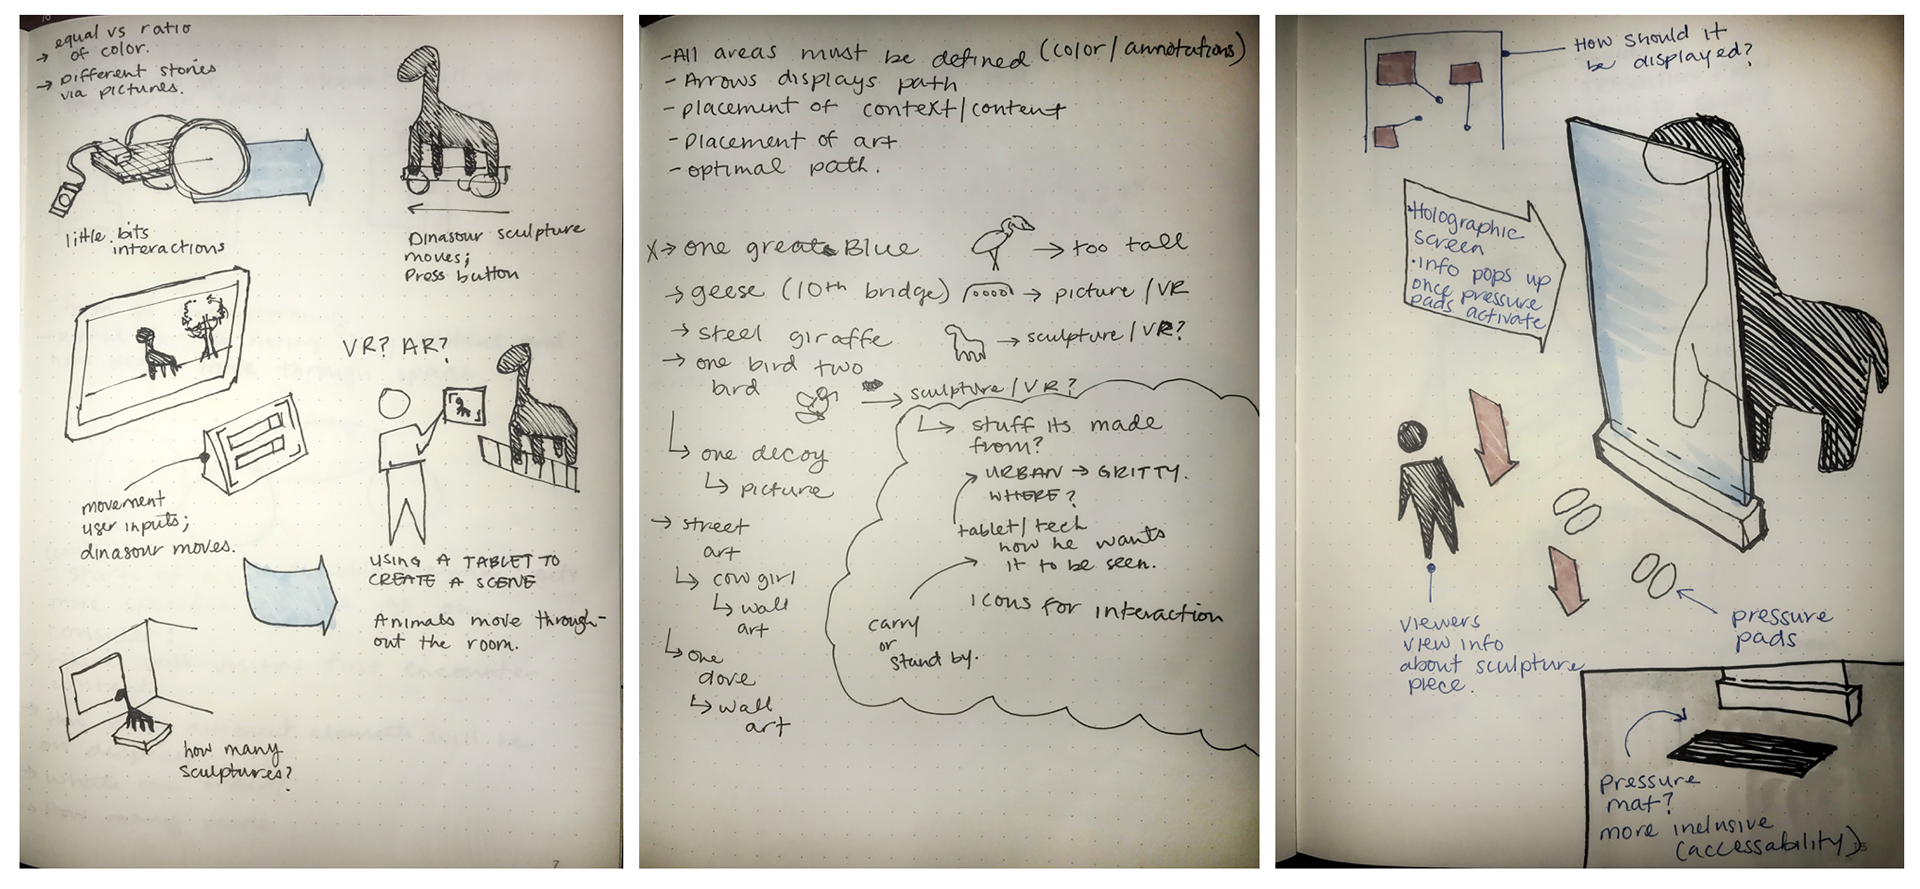 → equal vs ratio
of color.
→ Different stories
via pictures.
little bits
interactions
Dinasour sculpture
moves;
Press button
VR? AR?
movement
user inputs;
dinasour moves.
USING A TABLET TO
CREATE A SCENE
Animals move through-
out the room.
how many
sculptures?
7
-All areas must be defined (color/annotations)
- Arrows displays path
- placement of context/content
- placement of art
- optimal path.
X→ one great Blue → too tall
→ geese (10th bridge) → picture / VR
→ steel giraffe → sculpture / VR?
→ one bird two
bird → sculpture / VR?
↳ one decoy
↳ picture
→ street
art
↳ cowgirl
↳ wall
art
↳ one
dove
↳ wall
art
↳ stuff its made
from?
URBAN → GRITTY.
WHERE?
tablet/tech
how he wants
it to be seen.
Icons for interaction
carry
or
stand by.
How should it
be displayed?
•Holographic
screen
•info pops up
once pressure
pads activate
viewers
view info
about sculpture
piece.
pressure
pads
pressure
mat?
more inclusive
(accessability)